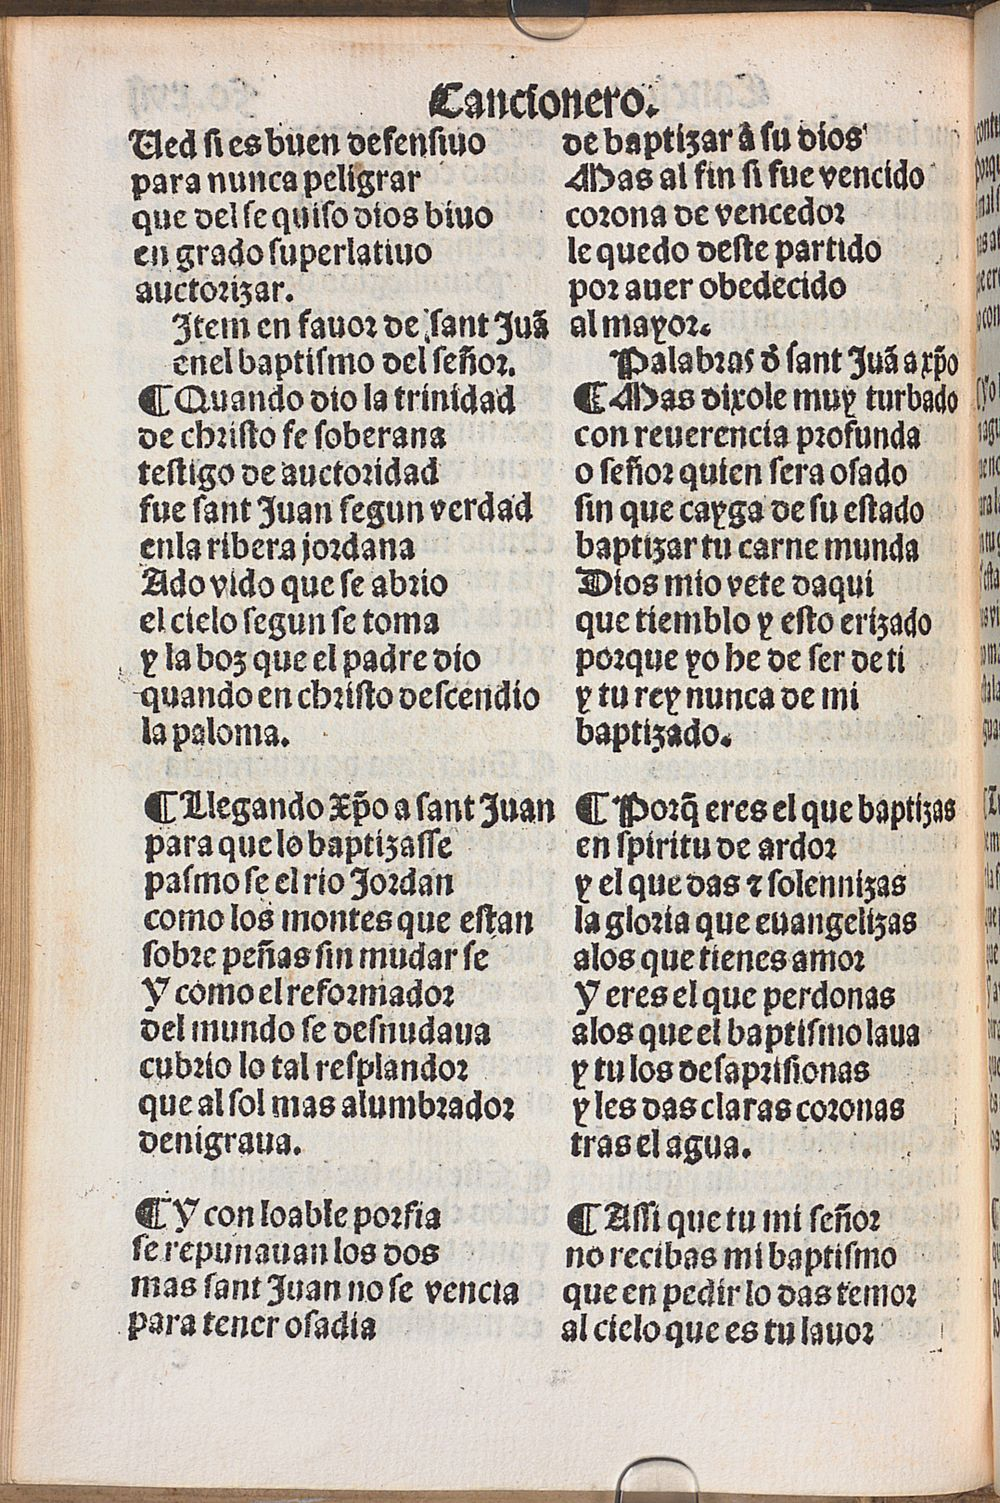 Cancionero.
Ued si es buen defensiuo
para nunca peligrar
que del se quiso dios biuo
en grado superlatiuo
auctorizar.
Item en fauor de sant Juã
enel baptismo del señor.
¶ Quando dio la trinidad
de christo fe soberana
testigo de auctoridad
fue sant Juan segun verdad
enla ribera jordana
Ado vido que se abrio
el cielo segun se toma
y la boz que el padre dio
quando en christo descendio
la paloma.
¶ Llegando xp̃o a sant Juan
para que lo baptizasse
pasmo se el rio Jordan
como los montes que estan
sobre peñas sin mudar se
Y como el reformador
del mundo se desnudaua
cubrio lo tal resplandor
que al sol mas alumbrador
denigraua.
¶ Y con loable porfia
se repunauan los dos
mas sant Juan no se vencia
para tener osadia
de baptizar a su dios
Mas al fin si fue vencido
corona de vencedor
le quedo deste partido
por auer obedecido
al mayor.
Palabras d̕ sant Juã a xp̃o
¶ Mas dixole muy turbado
con reuerencia profunda
o señor quien sera osado
sin que cayga de su estado
baptizar tu carne munda
Dios mio vete daqui
que tiemblo y esto erizado
porque yo he de ser de ti
y tu rey nunca de mi
baptizado.
¶ Porq̃ eres el que baptizas
en spiritu de ardor
y el que das ⁊ solennizas
la gloria que euangelizas
alos que tienes amor
Y eres el que perdonas
alos que el baptismo laua
y tu los desaprisionas
y les das claras coronas
tras el agua.
¶ Assi que tu mi señor
no recibas mi baptismo
que en pedir lo das temor
al cielo que es tu lauor